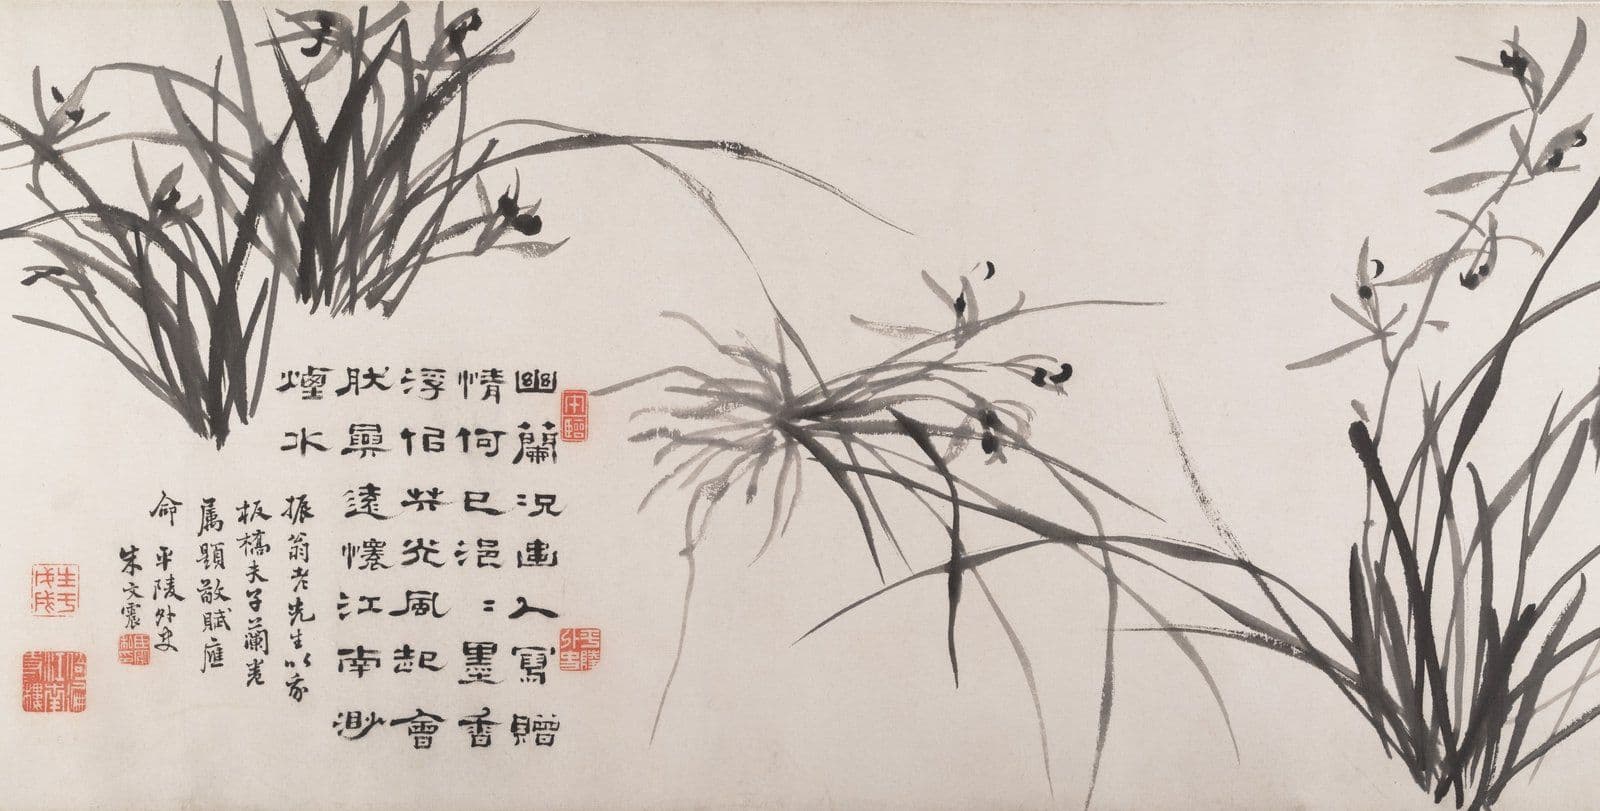 幽蘭況幽人寫贈
情何已浥〻墨香
浮佀共光風起會
遠懷江南渺
煙水
振翁老先生以家
板橋夫子蘭卷
属題敬賦應
命 平陵外史
朱文震
平陵外史